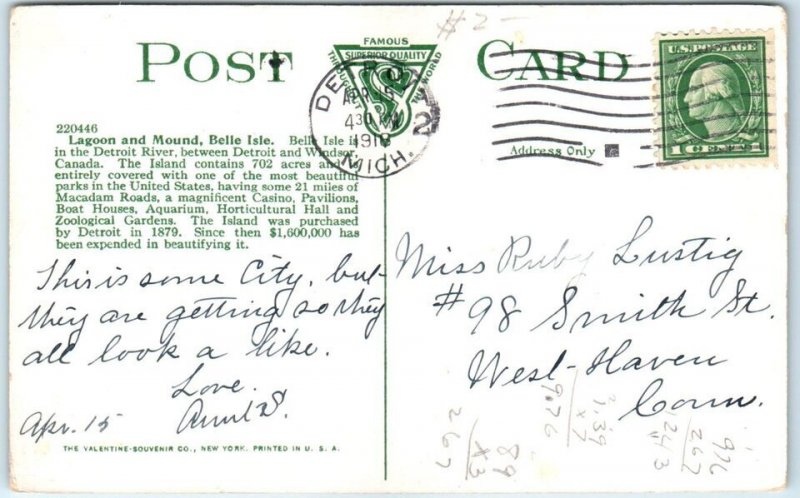 # 2 –
POST CARD
FAMOUS
SUPERIOR QUALITY
THROUGHOUT THE WORLD
S
DETROIT
APR 15
430 PM
MICH.
2
U.S. POSTAGE
1 CENT 1
Address Only
220446
Lagoon and Mound, Belle Isle. Belle Isle is
in the Detroit River, between Detroit and Windsor,
Canada. The Island contains 702 acres and is
entirely covered with one of the most beautiful
parks in the United States, having some 21 miles of
Macadam Roads, a magnificent Casino, Pavilions,
Boat Houses, Aquarium, Horticultural Hall and
Zoological Gardens. The Island was purchased
by Detroit in 1879. Since then $1,600,000 has
been expended in beautifying it.
This is some City, but
they are getting so they
all look a like.
Love.
Aunt S.
Apr. 15
Miss Ruby Lustig
#98 Smith St.
West-Haven
Conn.
89
x3
267
1.39
x7
9.76
THE VALENTINE-SOUVENIR CO., NEW YORK. PRINTED IN U. S. A.